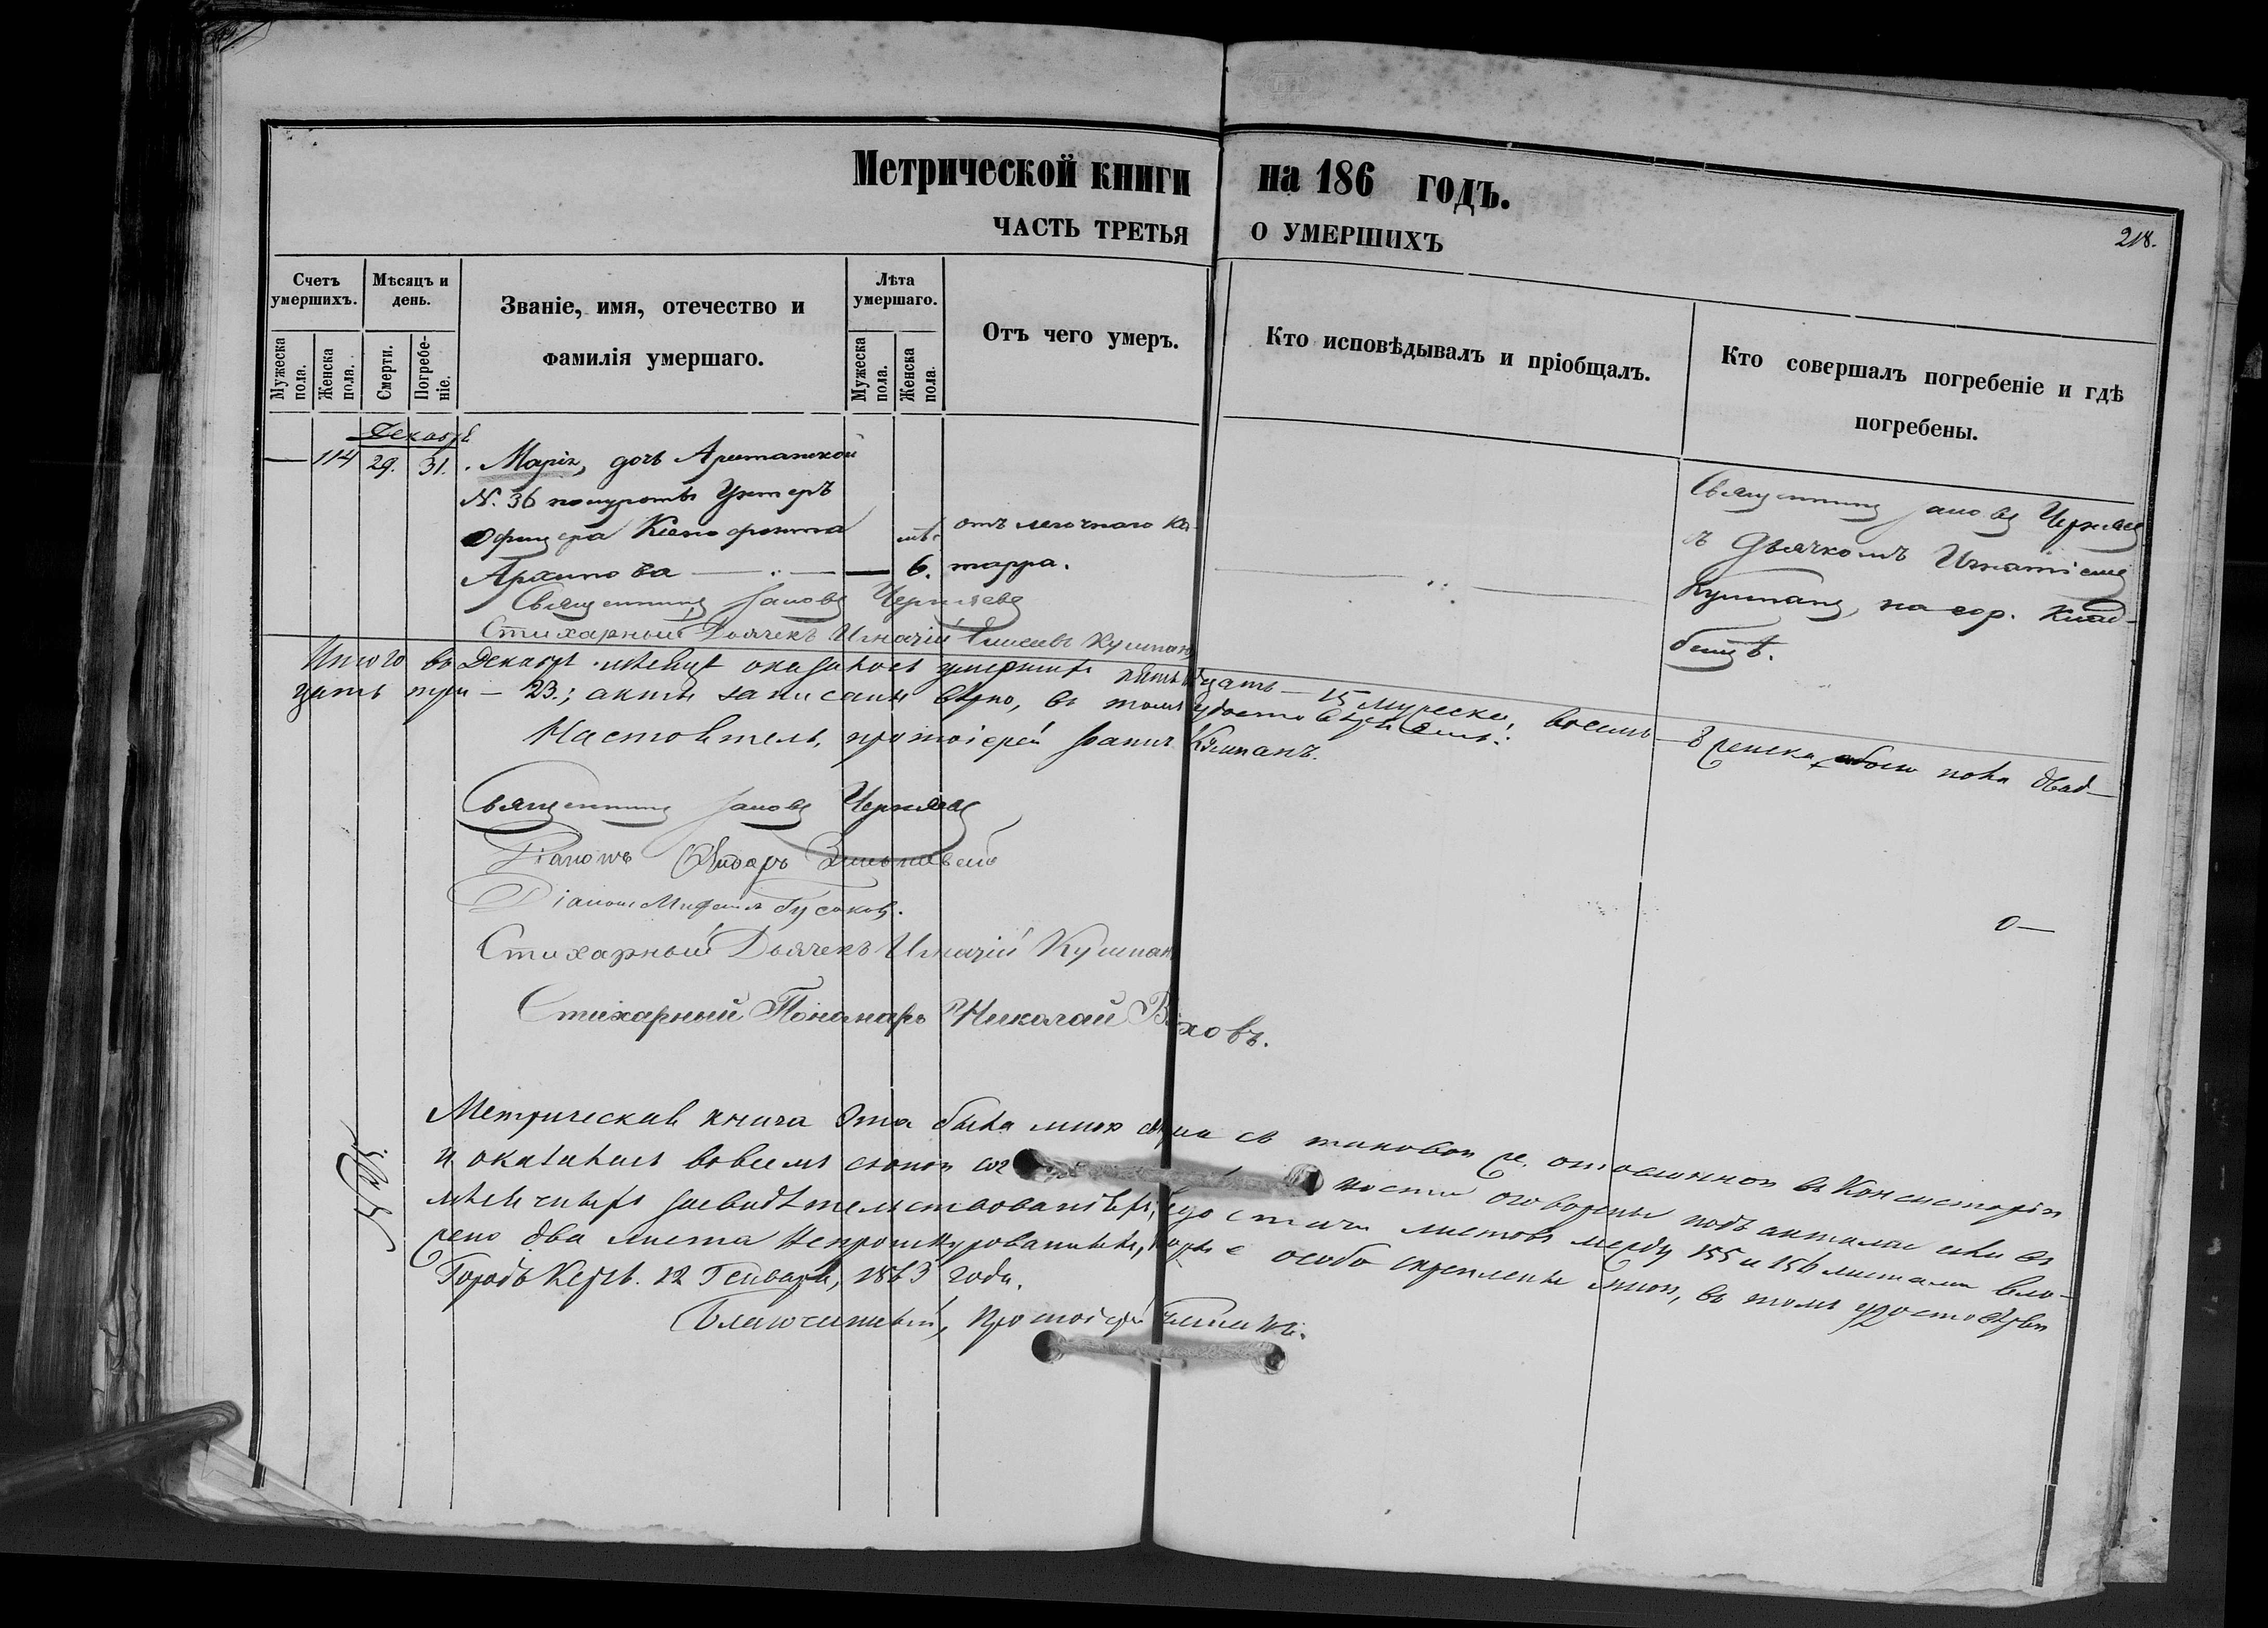 Метрической книги на 186 годъ.
ЧАСТЬ ТРЕТЬЯ О УМЕРШИХЪ
218.
Счетъ умершихъ.
Мужеска пола.
Женска пола.
Мѣсяцъ и день.
Смерти.
Погребеніе.
Званіе, имя, отечество и
фамилія умершаго.
Лѣта умершаго.
Мужеска пола.
Женска пола.
Отъ чего умеръ.
Кто исповѣдывалъ и пріобщалъ.
Кто совершалъ погребеніе и гдѣ
погребены.
Декабрь
— 114 29. 31. Марія, дочь Арестанской
№. 36 полуроты Унтеръ
Офицера Ксенофонта
Архипова — 6.
отъ легочнаго ка-
тарра.
Священникъ Іаковъ Черняевъ
съ Дьячкомъ Игнатіемъ
Кушпанъ, на гор. клад-
бищѣ.
Священникъ Іаковъ Черняевъ
Стихарный Дьячекъ Игнатій Кушпанъ
Итого въ Декабрѣ мѣсяцѣ оказалось умершихъ пятнадцать — 15 мужеска, восемь — 8 женска, обоего пола двад-
цать три — 23.; акты записаны вѣрно, въ томъ удостовѣряемъ:
Настоятель, протоіерей Іоаннъ Кушпанъ.
Священникъ Іаковъ Черняевъ
Діаконъ
Діаконъ Гусаковъ.
Стихарный Дьячекъ Игнатій Кушпанъ
Стихарный Пономарь Николай
Метрическая книга эта была мною съ таковою же, отосланною въ Консисторію
и оказалась во всемъ оговорены подъ актами или въ
листовъ между 155 и 156 листами вло-
жено два листа непрошнурованныхъ, особо скрепленые мною, въ томъ удостовѣряю
Городъ Керчь. 12 Генваря, 1863 года.
Благочинный, Протоіерей